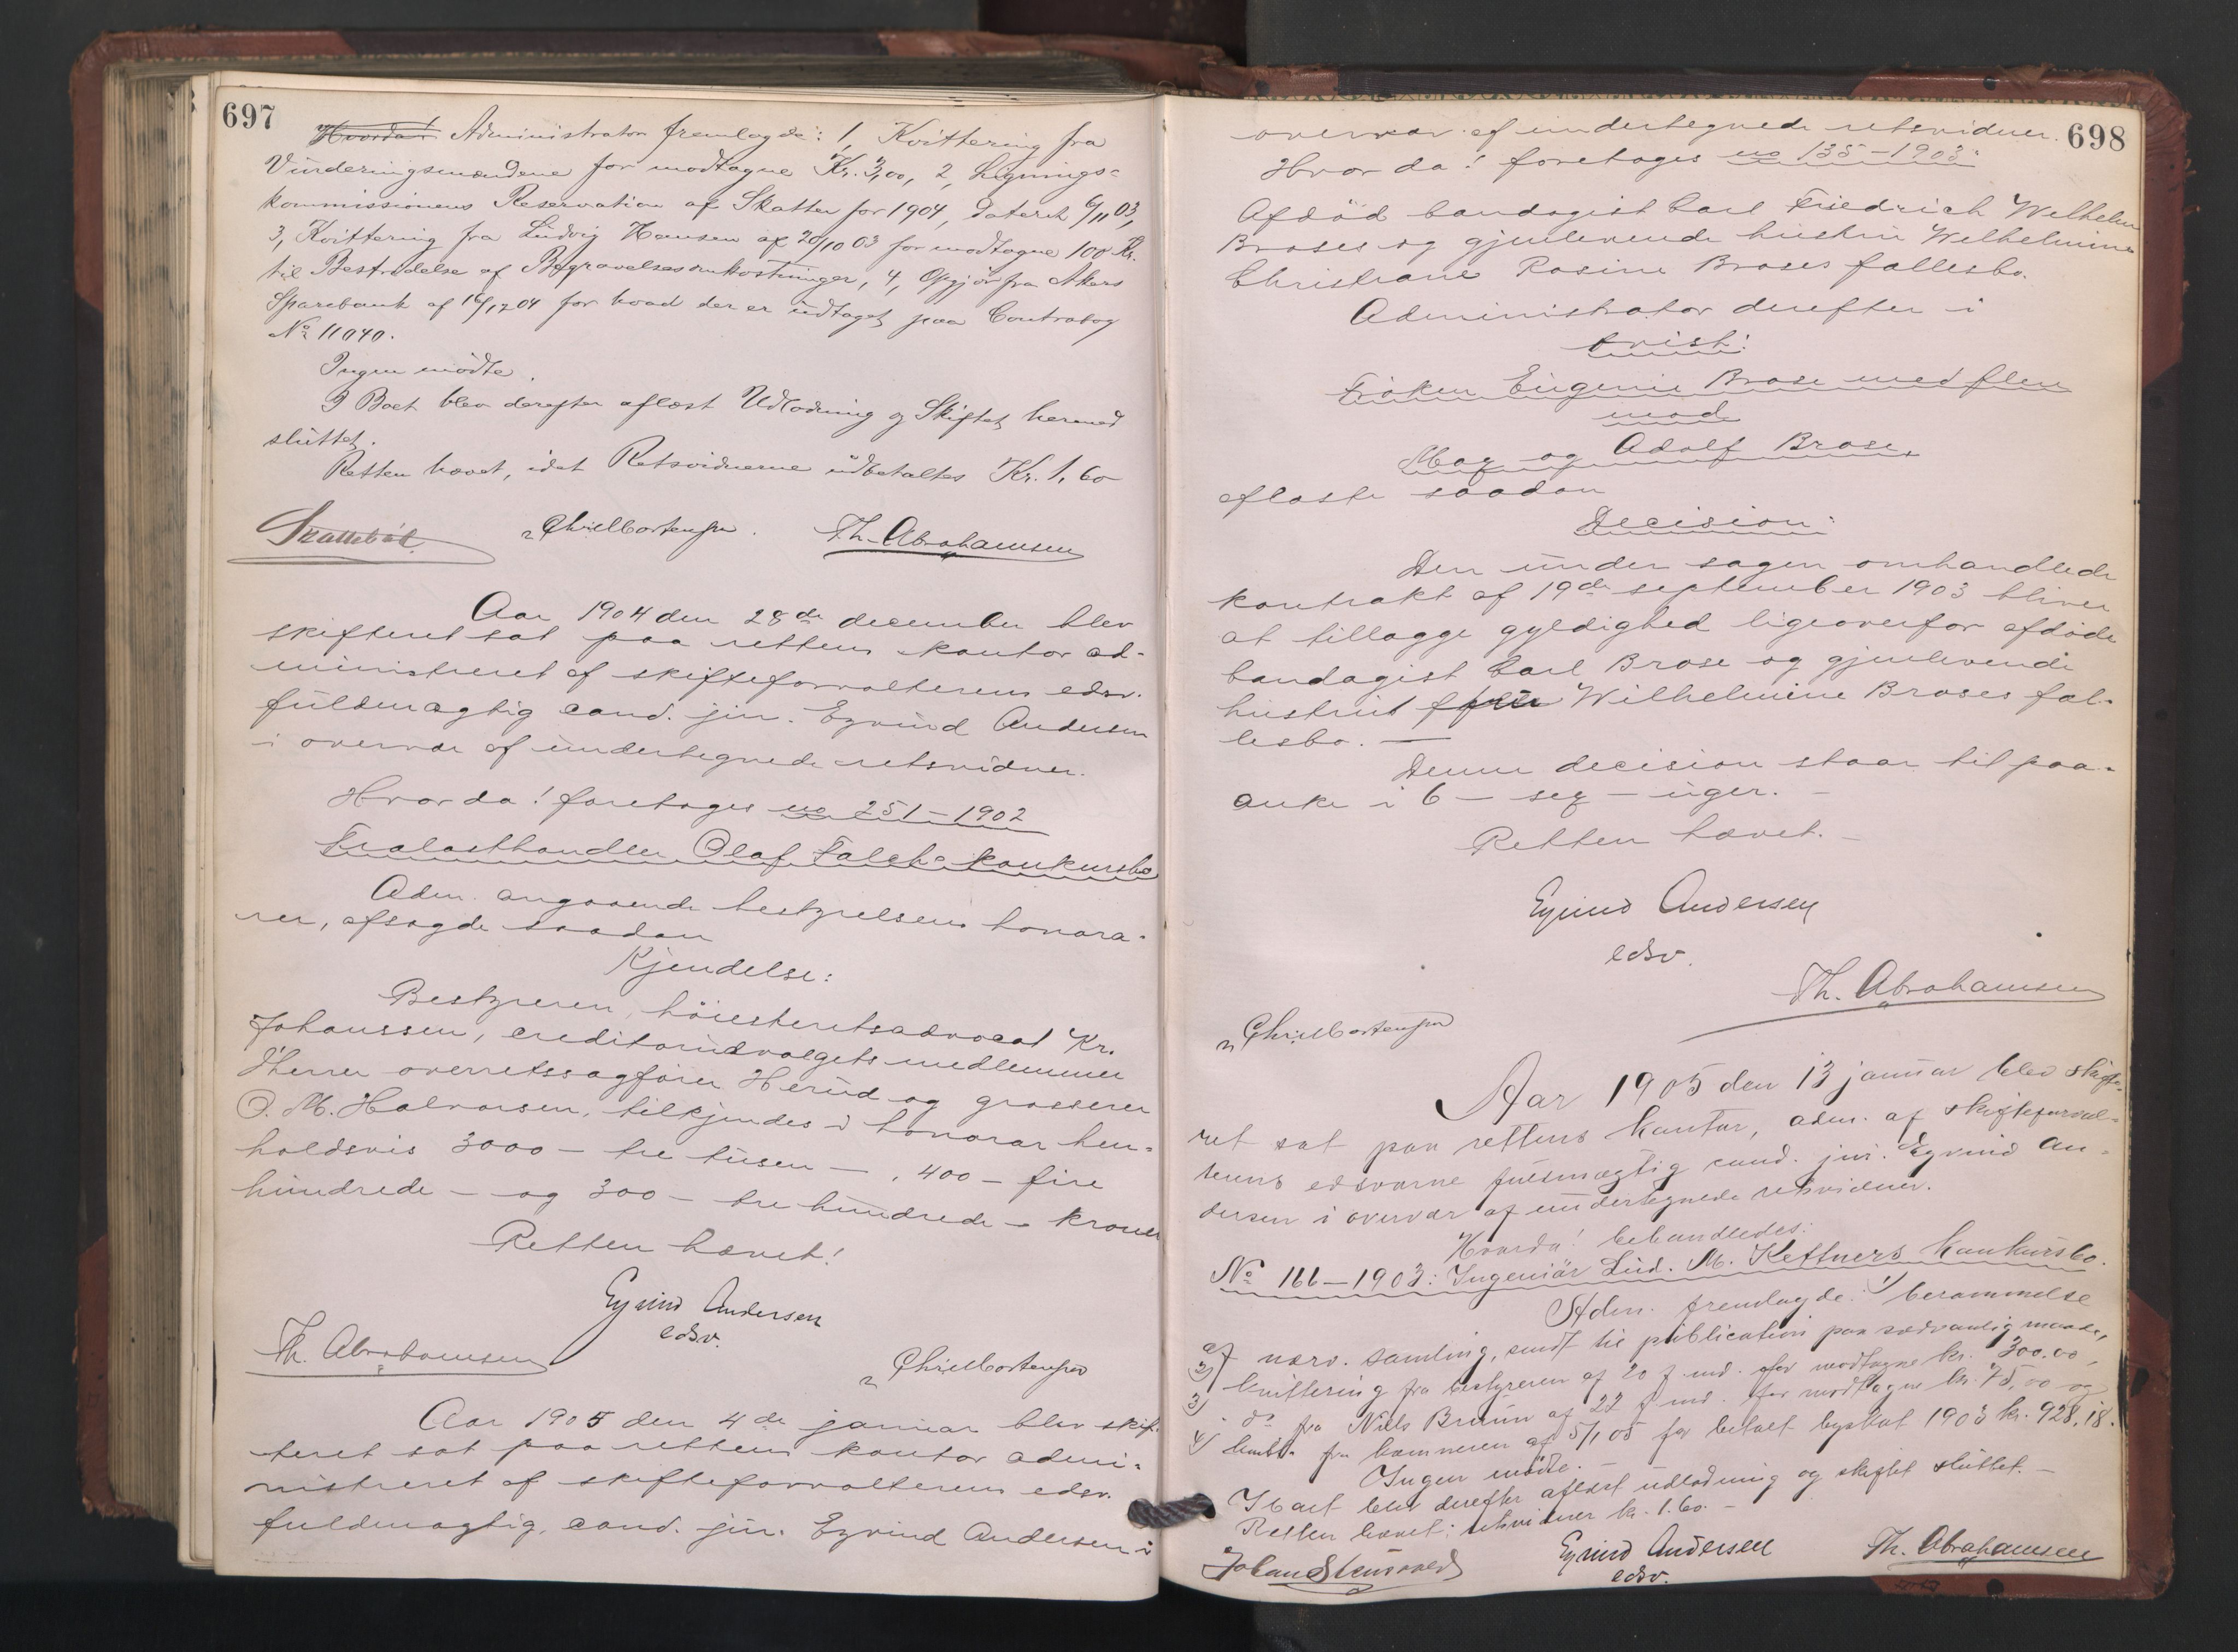 697
Hvorda! Administrator fremlagde: 1, Kvittering fra
Vurderingsmændene for modtagne Kr. 3,00, 2, Lignings-
kommissionens Reservation af Skatten for 1904, dateret 6/11 03,
3, Kvittering fra Ludvig Hansen af 20/10 03 for modtagne 100 Kr.
til Bestridelse af Begravelsesomkostninger, 4, Opgjør fra Akers
Sparebank af 16/12 04 for hvad der er udtaget paa Contrabog
No 11040.
Ingen mødte.
I Boet blev derefter aflæst Udlodning og Skiftet hermed
sluttet.
Retten hævet, idet Retsvidnerne udbetaltes Kr. 1,60
Skattebøl Chr. Mortensen. Th. Abrahamsen
Aar 1904 den 28de december blev
skifteret sat paa rettens kontor ad-
ministreret af skifteforvalterens edsv.
fuldmægtig cand. jur. Eyvind Andersen
i overvær af undertegnede retsvidner.
Hvorda! foretoges no 251–1902
Trælasthandler Olaf Falchs konkursbo
Adm. angaaende bestyrelsens honora-
rer, afsagde saadan
Kjendelse:
Bestyreren, høiesteretsadvocat Kr.
Johanssen, creditorudvalgets medlemmer
Herrer overretssagfører Herud og grosserer
O. M. Halvorsen, tilkjendes i honorar hen-
holdsvis 3000 – tre tusen –, 400 – fire
hundrede – og 300 – tre hundrede – kroner
Retten hævet!
Eyvind Andersen
edsv.
Th. Abrahamsen
Chr. Mortensen
Aar 1905 den 4de januar blev skif-
teret sat paa rettens kontor admi-
nistreret af skifteforvalterens edsv.
fuldmægtig, cand. jur. Eyvind Andersen i
698
overvær af undertegnede retsvidner.
Hvorda! foretoges no 135–1903:
Afdød bandagist Carl Friedrich Wilhelm
Broses og gjenlevende hustru Wilhelmine
Christiane Rosine Broses fællesbo.
Administrator derefter i
tvist:
Frøken Eugenie Brose med flere
mod
Max og Adolf Brose,
aflæste saadan
Decision:
Den under sagen omhandlede
kontrakt af 19de september 1903 bliver
at tillægge gyldighed ligeoverfor afdøde
bandagist Carl Brose og gjenlevende
hustru Wilhelmine Broses fæl-
lesbo. —
Denne decision staar til paa-
anke i 6 – sex – uger. –
Retten hævet. –
Eyvind Andersen
edsv.
Th. Abrahamsen
Chr. Mortensen
Aar 1905 den 13 januar blev skifte-
ret sat paa rettens kontor, adm. af skifteforval-
terens edsvorne fuldmægtig cand. jur. Eyvind An-
dersen i overvær af undertegnede retsvidner.
Hvorda! behandledes:
No 166–1903: Ingeniør Lud. M. Kettners konkursbo.
Adm. fremlagde: 1/ berammelse
af nærv. samling, sendt til publication paa sædvanlig maade,
2) kvittering fra bestyreren af 20 f. md. for modtagne kr. 300.00,
3) do fra Niels Bruun af 22 f md. for modtagne kr. 75,00 og
4) kvitt. fra kæmneren af 5/1 05 for betalt byskat 1903 kr. 928,18.
Ingen mødte. –
I boet blev derefter aflæst udlodning og skiftet sluttet. –
Retten hævet; retsvidner kr. 1.60. –
Eyvind Andersen
edsv.
Th. Abrahamsen